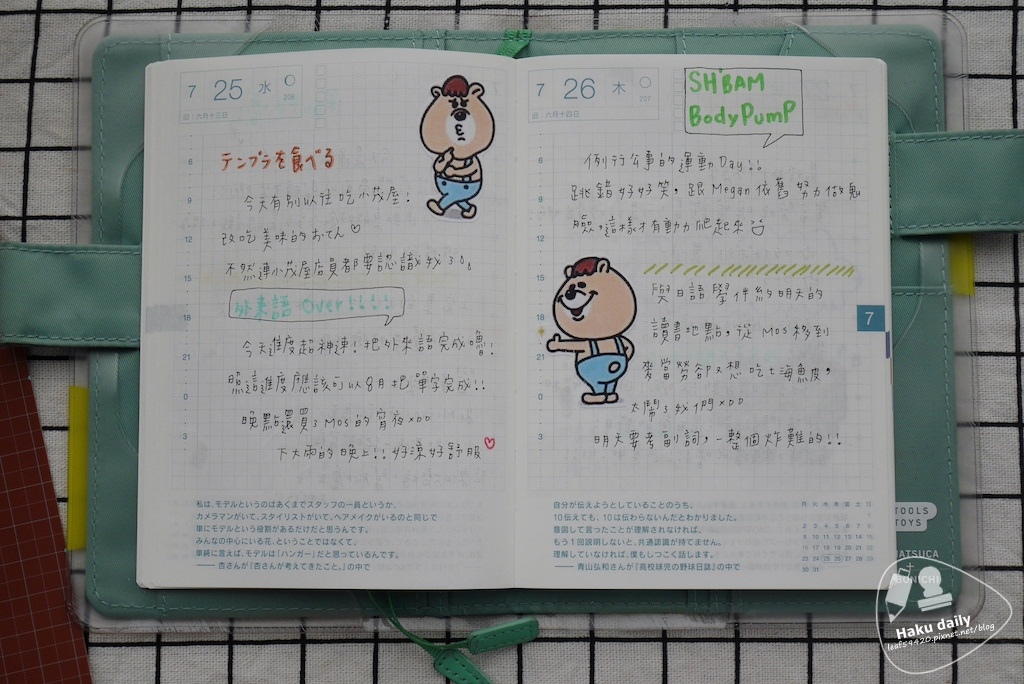 7 25 水
206
旧:六月十三日
テンプラを食べる
今天有別以往吃小茂屋!
改吃美味的おでん♡
不然連小茂屋店員都要認識我了。
外來語 Over!!!!
今天進度超神速!把外來語完成嚕!
照這進度應該可以8月把單字完成!!
晚點還買了MOS的宵夜xDD
下大雨的晚上!!好涼好舒服♡
6
9
12
15
18
21
0
3
私は、モデルというのはあくまでスタッフの一員というか、
カメラマンがいて、スタイリストがいて、ヘアメイクがいるのと同じで
単にモデルという役割があるだけだと思うんです。
みんなの中心にいる花、ということではなくて。
単純に言えば、モデルは「ハンガー」だと思っているんです。
—— 杏さんが『杏さんが考えてきたこと。』の中で
7 26 木
207
旧:六月十四日
SH'BAM
BodyPumP
例行公事的運動Day!!
跳錯好好笑,跟Megan依舊努力做鬼
臉,這樣才有動力爬起來
與日語學伴約明天的
讀書地點,從MOS移到
麥當勞卻又想吃土海魚皮,
太鬧了我們xDD
明天要考副詞,一整個炸難的!!
6
9
12
15
18
21
0
3
7
自分が伝えようとしていることのうち、
10伝えても、10は伝わらないんだとわかりました。
意図して言ったことが理解されなければ、
もう1回説明しないと、共通認識が持てません。
理解していなければ、僕もしつこく話します。
—— 青山弘和さんが『高校球児の野球日誌』の中で
月 火 水 木 金 土 日
1
2 3 4 5 6 7 8
9 10 11 12 13 14 15
16 17 18 19 20 21 22
23 24 25 26 27 28 29
30 31
TOOLS
TOYS
Haku daily
leaf59420.pixnet.net/blog